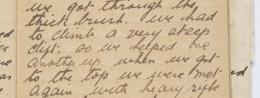 we got through the
thick brush. we had
to climb a very steep
clift. so we helped one
another up, when we got
to the top we were met
again with heavy rifle